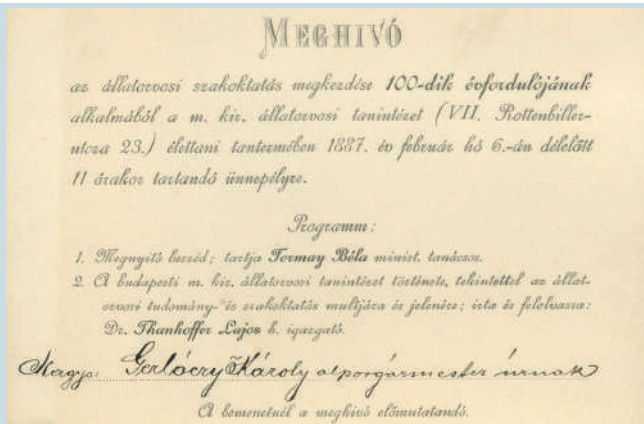 MEGHIVÓ
az állatorvosi szakoktatás megkezdése 100-dik évfordulójának
alkalmából a m. kir. állatorvosi tanintézet (VII. Rottenbiller-
utcza 23.) élettani tantermében 1887. év február hó 6.-án délelőtt
11 órakor tartandó ünnepélyre.
Programm:
1. Megnyitó beszéd; tartja Tormay Béla minist. tanácsos.
2. A budapesti m. kir. állatorvosi tanintézet története, tekintettel az állat-
orvosi tudomány- és szakoktatás multjára és jelenére; irta és felolvassa:
Dr. Thanhoffer Lajos h. igazgató.
Nagys. Gerlóczy Károly alpolgármester úrnak
A bemenetnél a meghivó előmutatandó.